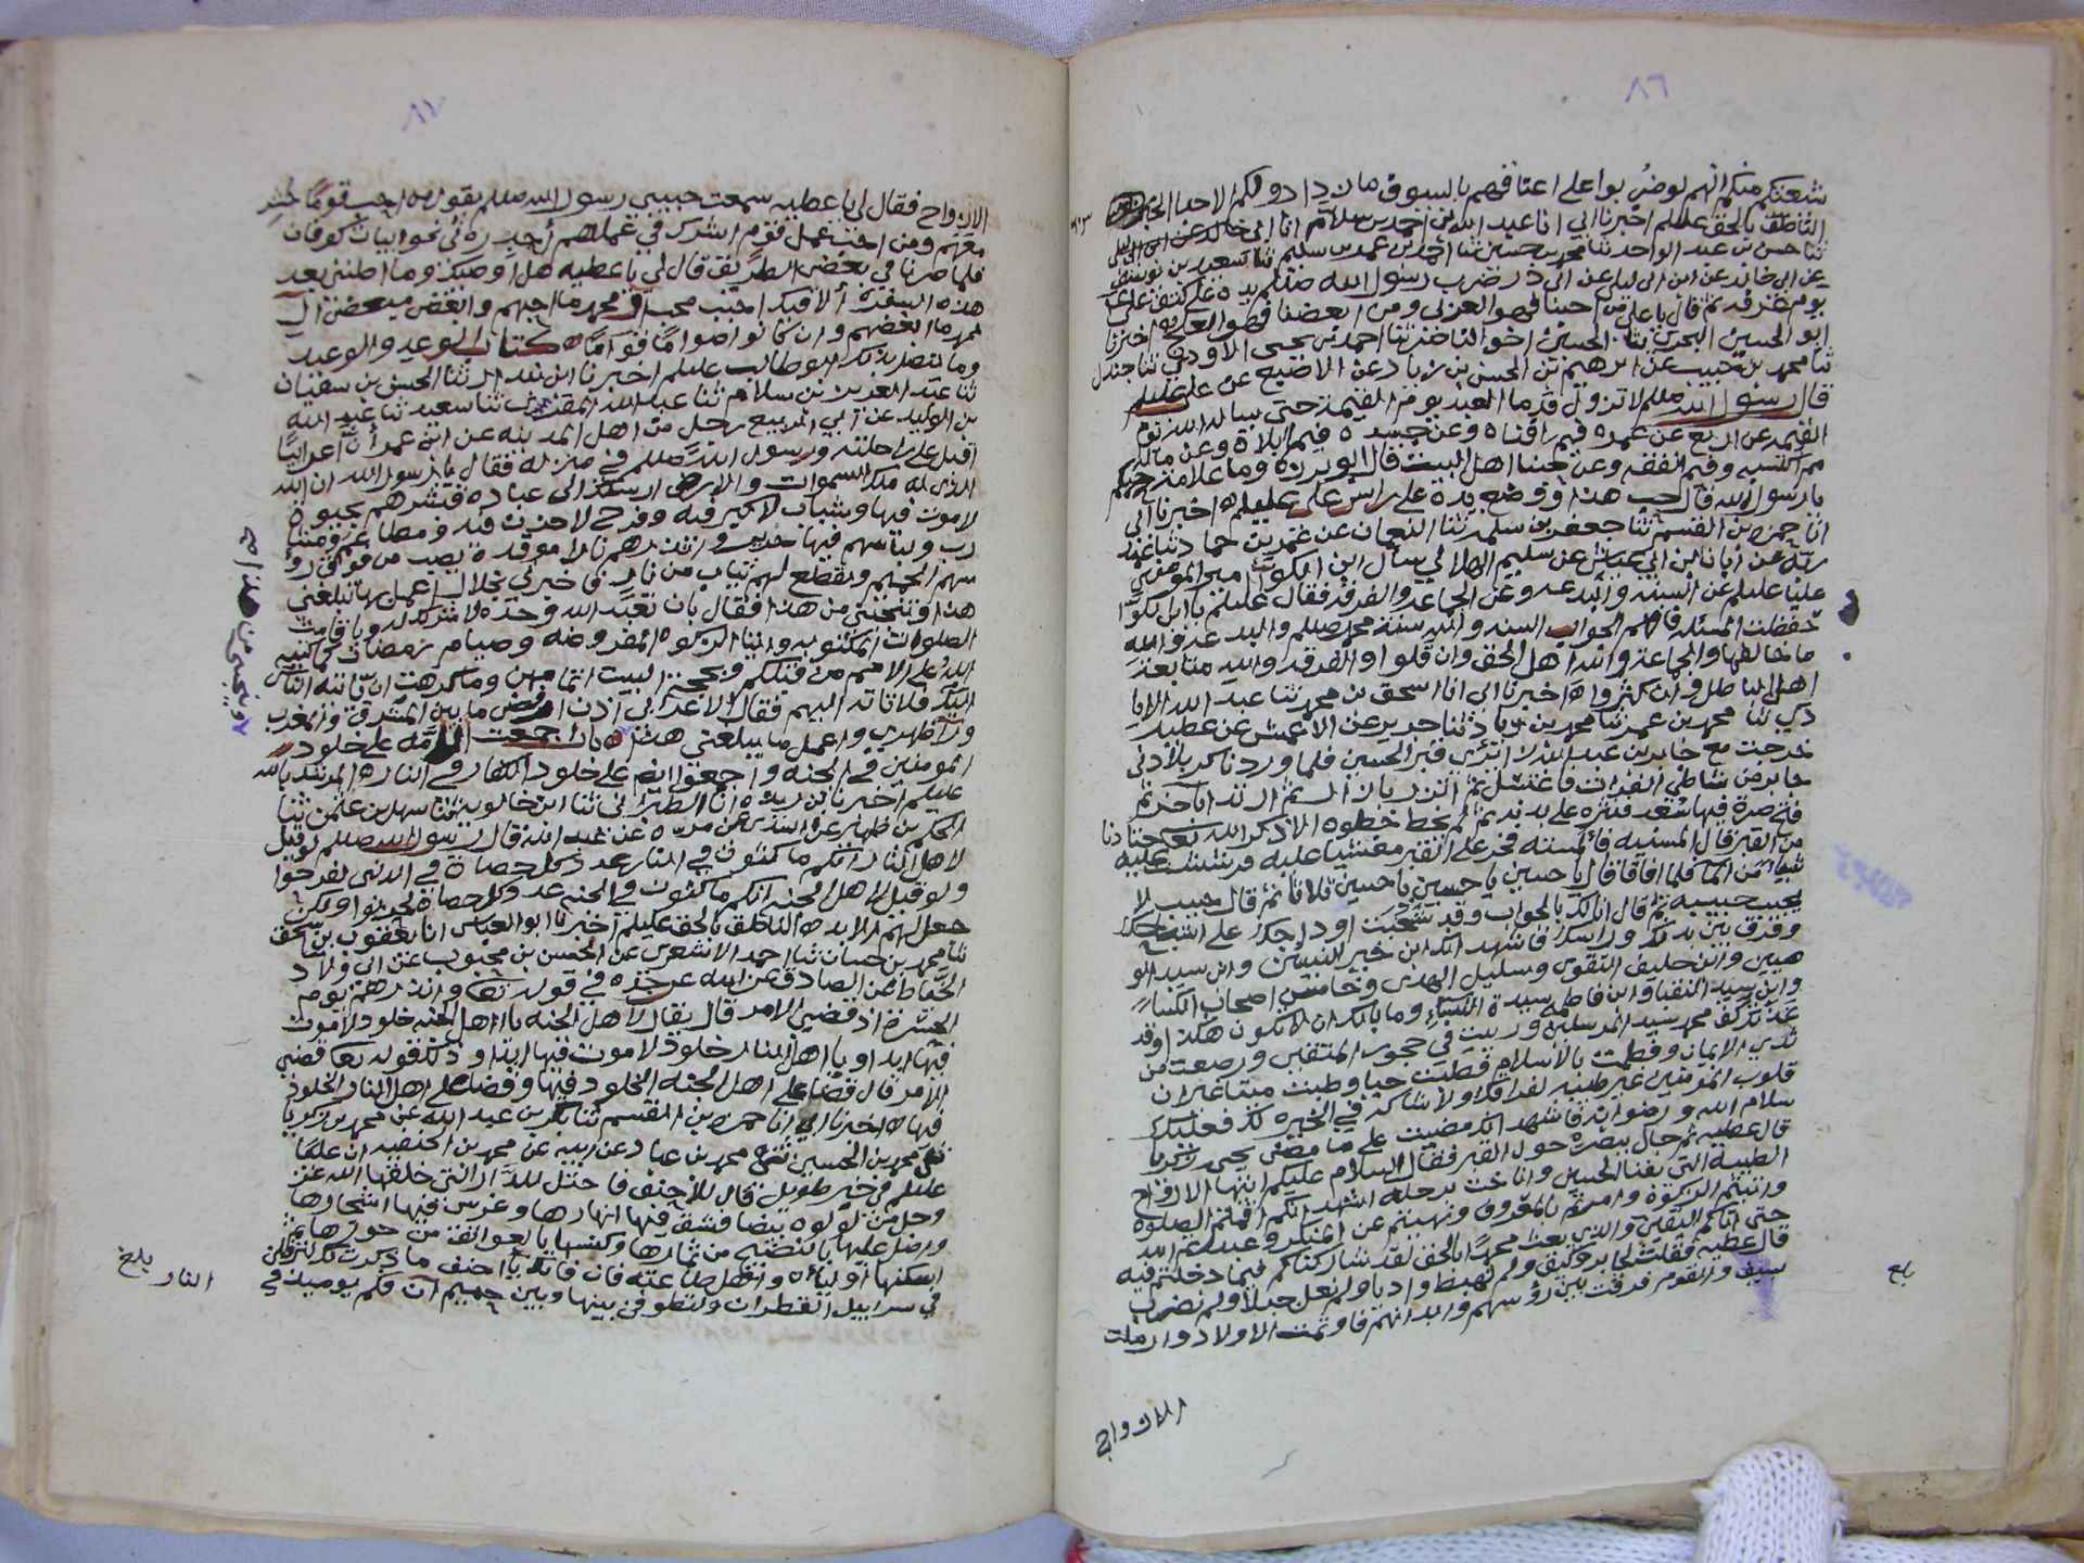 ٨٦
شعتكم منكم انهم لو ضربوا على اعناقهم بالسيوف ما ازدادوا لكم الا حبا
الناطق بالحق عليلم اخبرنا ابي انا عبد الله بن احمد بن سلام انا ابي خالد عن
ثنا حسن بن عبد الواحد ثنا محمد بن حسين ثنا احمد بن محمد بن سليم ثنا سعيد بن
عن ابي خالد عن ابن ابي ليلى عن ابي ذر ضرب رسول الله صللم يده على كتف علي
يوم عرفه ثم قال يا علي من احبنا فهو العربي ومن ابغضنا فهو العلج اخبرنا
ابو الحسين البحري ثنا الحسين اخو الناصر ثنا احمد بن يحيى الاودي ثنا جندل
ثنا محمد بن حبيب عن ابرهيم بن الحسن بن زياد عن الاصبغ عن علي عليلم
قال رسول الله صللم لا تزول قدما العبد يوم القيمة حتى يساله الله
القيمه عن اربع عن عمره فيم افناه وعن جسده فيم ابلاه وعن ماله
مم اكتسبه وفيم انفقه وعن حبنا اهل البيت قال ابو برزه وما علامة حبكم
يا رسول الله قال حب هذا ووضع يده على راس علي عليلم اخبرنا ابي
انا حمزه بن القسم ثنا جعفر بن سلمه ثنا النعمان عن عمر بن حماد ثنا
عن ابان ابن ابي عياش عن سليم الهلالي سأل ابن الكوا امير المومنين
عليا عليلم عن السنه والبدعه وعن الجماعه والفرقه فقال عليلم يا ابن الكوا
حفظت المسئله فافهم الجواب السنه والله سنة محمد صللم والبدعه والله
ما خالفها والجماعه والله اهل الحق وان قلوا والفرقه والله متابعة
اهل الباطل وان كثروا اخبرنا ابي انا اسحق بن محمد ثنا عبد الله الايا
دي ثنا محمد بن عمر ثنا محمد بن زياد ثنا جرير عن الاعمش عن عطيه
خرجت مع جابر بن عبد الله زائري قبر الحسين فلما وردنا كربلا دنى
جابر من شاطئ الفرات فاغتسل ثم اتزر بازار ثم ارتدا باخر ثم
فتح صرة فيها سعد فنثره على بدنه ثم لم يخط خطوه الا ذكر الله تعالى حتى دنا
من القبر قال المسنيه فالمسته فخر على القبر مغشيا عليه فرششت عليه
شيئا من الما فلما افاق قال يا حسين يا حسين يا حسين ثلاثا ثم قال حبيب لا
يجيب حبيبه ثم قال انى لك بالجواب وقد شحبت اوداجك على اثباجك
وفرق بين بدنك وراسك فاشهد انك ابن خير النبيين وابن سيد المو
منين وابن حليف التقوى وسليل الهدى وخامس اصحاب الكساء
وابن سيد النقبا وابن فاطمه سيدة النساء وما بالك ان لا تكون هكذا وقد
غذتك كف محمد سيد المرسلين وربيت في حجور المتقين ورضعت من
ثدي الايمان وفطمت بالاسلام فطبت حيا وطبت ميتا غير ان
قلوب المومنين غير طيبه لفراقك ولا شاكه في الخيره لك فعليك
سلام الله ورضوانه فاشهد انك مضيت على ما مضى يحيى بن زكريا
قال عطيه ثم جال ببصره حول القبر فقال السلام عليكم ايتها الارواح
الطيبه التي بفنا الحسين واناخت برحله اشهد انكم اقمتم الصلوة
واتيتم الزكوة وامرتم بالمعروف ونهيتم عن المنكر وعبدتم الله
حتى اتاكم اليقين والذي بعث محمدا بالحق لقد شاركناكم فيما دخلتم فيه
قال عطيه فقلت لجابر وكيف ولم نهبط واديا ولم نعل جبلا ولم نضرب
بسيف والقوم فرقت بين رؤسهم وابدانهم فاوتمت الاولاد وارملت
الازواج
بلغ
٨٧
الازواج فقال لي يا عطيه سمعت حبيبي رسول الله صللم يقول من احب قوما حشر
معهم ومن احب عمل قوم اشرك في عملهم احدره لي نحو ابيات كوفان
فلما صرنا في بعض الطريق قال لي يا عطيه هل اوصيك وما اظنني بعد
هذه السفرة الاقيك احبب محب ال محمد ما احبهم وابغض مبغض ال
محمد ما ابغضهم وان كانوا صواما قواما كتاب الوعد والوعيد
وما يتصل بذلك ابو طالب عليلم اخبرنا ابن بندار ثنا الحسن بن سفيان
ثنا عبد العزيز بن سلام ثنا عبد الله المقري ثنا سعيد ثنا عبد الله
بن الوليد عن ابي الربيع رجل من اهل المدينه عن ابن عمر ان اعرابيا
اقبل على راحلته ورسول الله صللم في منزله فقال يا رسول الله ان الله
الذي له ملك السموات والارض ارسلك الى عباده فتبشرهم بحبوة
لا موت فيها وشباب لا كبر فيه وفرح لا حزن فيه ومطاعم ومشا
رب ولباسهم فيها حرير وتنذرهم نارا موقدة يصب من فوق رؤ
سهم الحميم ويقطع لهم ثياب من نار فاخبرني بخلال اعمل بها تبلغني
هذا وتنجني من هذا فقال بان تعبد الله وحده لا شرك له وباقامت
الصلوات المكتوبه وايتا الزكوه المفروضه وصيام رمضان كما كتبه
الله على الامم من قبلكم وبحجه البيت اتمامهن وما كرهت ان ياتيه الناس
اليك فلا تاته اليهم فقال الاعرابي اذن ارفض ما بين المشرق والمغرب
ورا ظهري واعمل ما يبلغني هذا باب اجمعت الامه على خلود
المومنين في الجنه واجمعوا ايضا على خلود الكفار في النار المرشد بالله
عليلم اخبرنا ابن ريذه انا الطبراني ثنا ابن خالويه ثنا سهل بن عثمن ثنا
الحكم بن ظهير عن السدي عن مره عن عبد الله قال رسول الله صللم لو قيل
لاهل النار انكم ماكثون في النار عدد كل حصاة في الدنى لفرحوا
ولو قيل لاهل الجنه انكم ماكثون في الجنه عدد كل حصاة لحزنوا ولكن
جعل لهم الابد الناطق بالحق عليلم اخبرنا ابو العباس انا يعقوب بن اسحق
ثنا محمد بن حسان ثنا احمد الاشعري عن الحسن بن محبوب عن ابي ولاد
الحناط عن الصادق عن ابيه عن جده في قوله تعا وانذرهم يوم
الحسرة اذ قضي الامر قال يقال لاهل الجنه يا اهل الجنه خلود لا موت
فيها ابدا ويا اهل النار خلود لا موت فيها ابدا وذلك قوله تعا قضي
الامر قال قضى على اهل الجنه الخلود فيها وقضى على اهل النار الخلود
فيها اخبرنا ابي انا حمزه بن القسم ثنا بكر بن عبد الله عن محمد بن زكريا
ثنا محمد بن الحسين ثنا محمد بن عباد عن ابيه عن محمد بن الحنفيه ان عليا
عليلم في خبر طويل قال للاحنف فاحتل للدار التي خلقها الله عز
وجل من لؤلؤه بيضا فشق فيها انهارها وغرس فيها اشجارها
وظلل عليها بالنضيج من ثمارها وكبسها بالعواتق من حورها ثم
اسكنها اولياه واهل طاعته فان فاتك يا احنف ما ذكرت لك لترفلن
في سرابيل القطران ولتطوفن بينها وبين حميم ان فكم يوميذ في
النار
بلغ
وينجيني من هذا صح